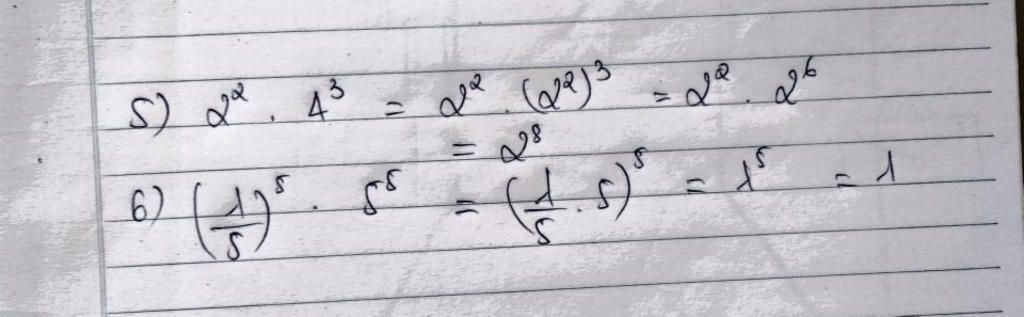 5) 2² . 4³ = 2² . (2²)³ = 2² . 2⁶
= 2⁸
6) (1/5)⁵ . 5⁵ = (1/5 . 5)⁵ = 1⁵ = 1